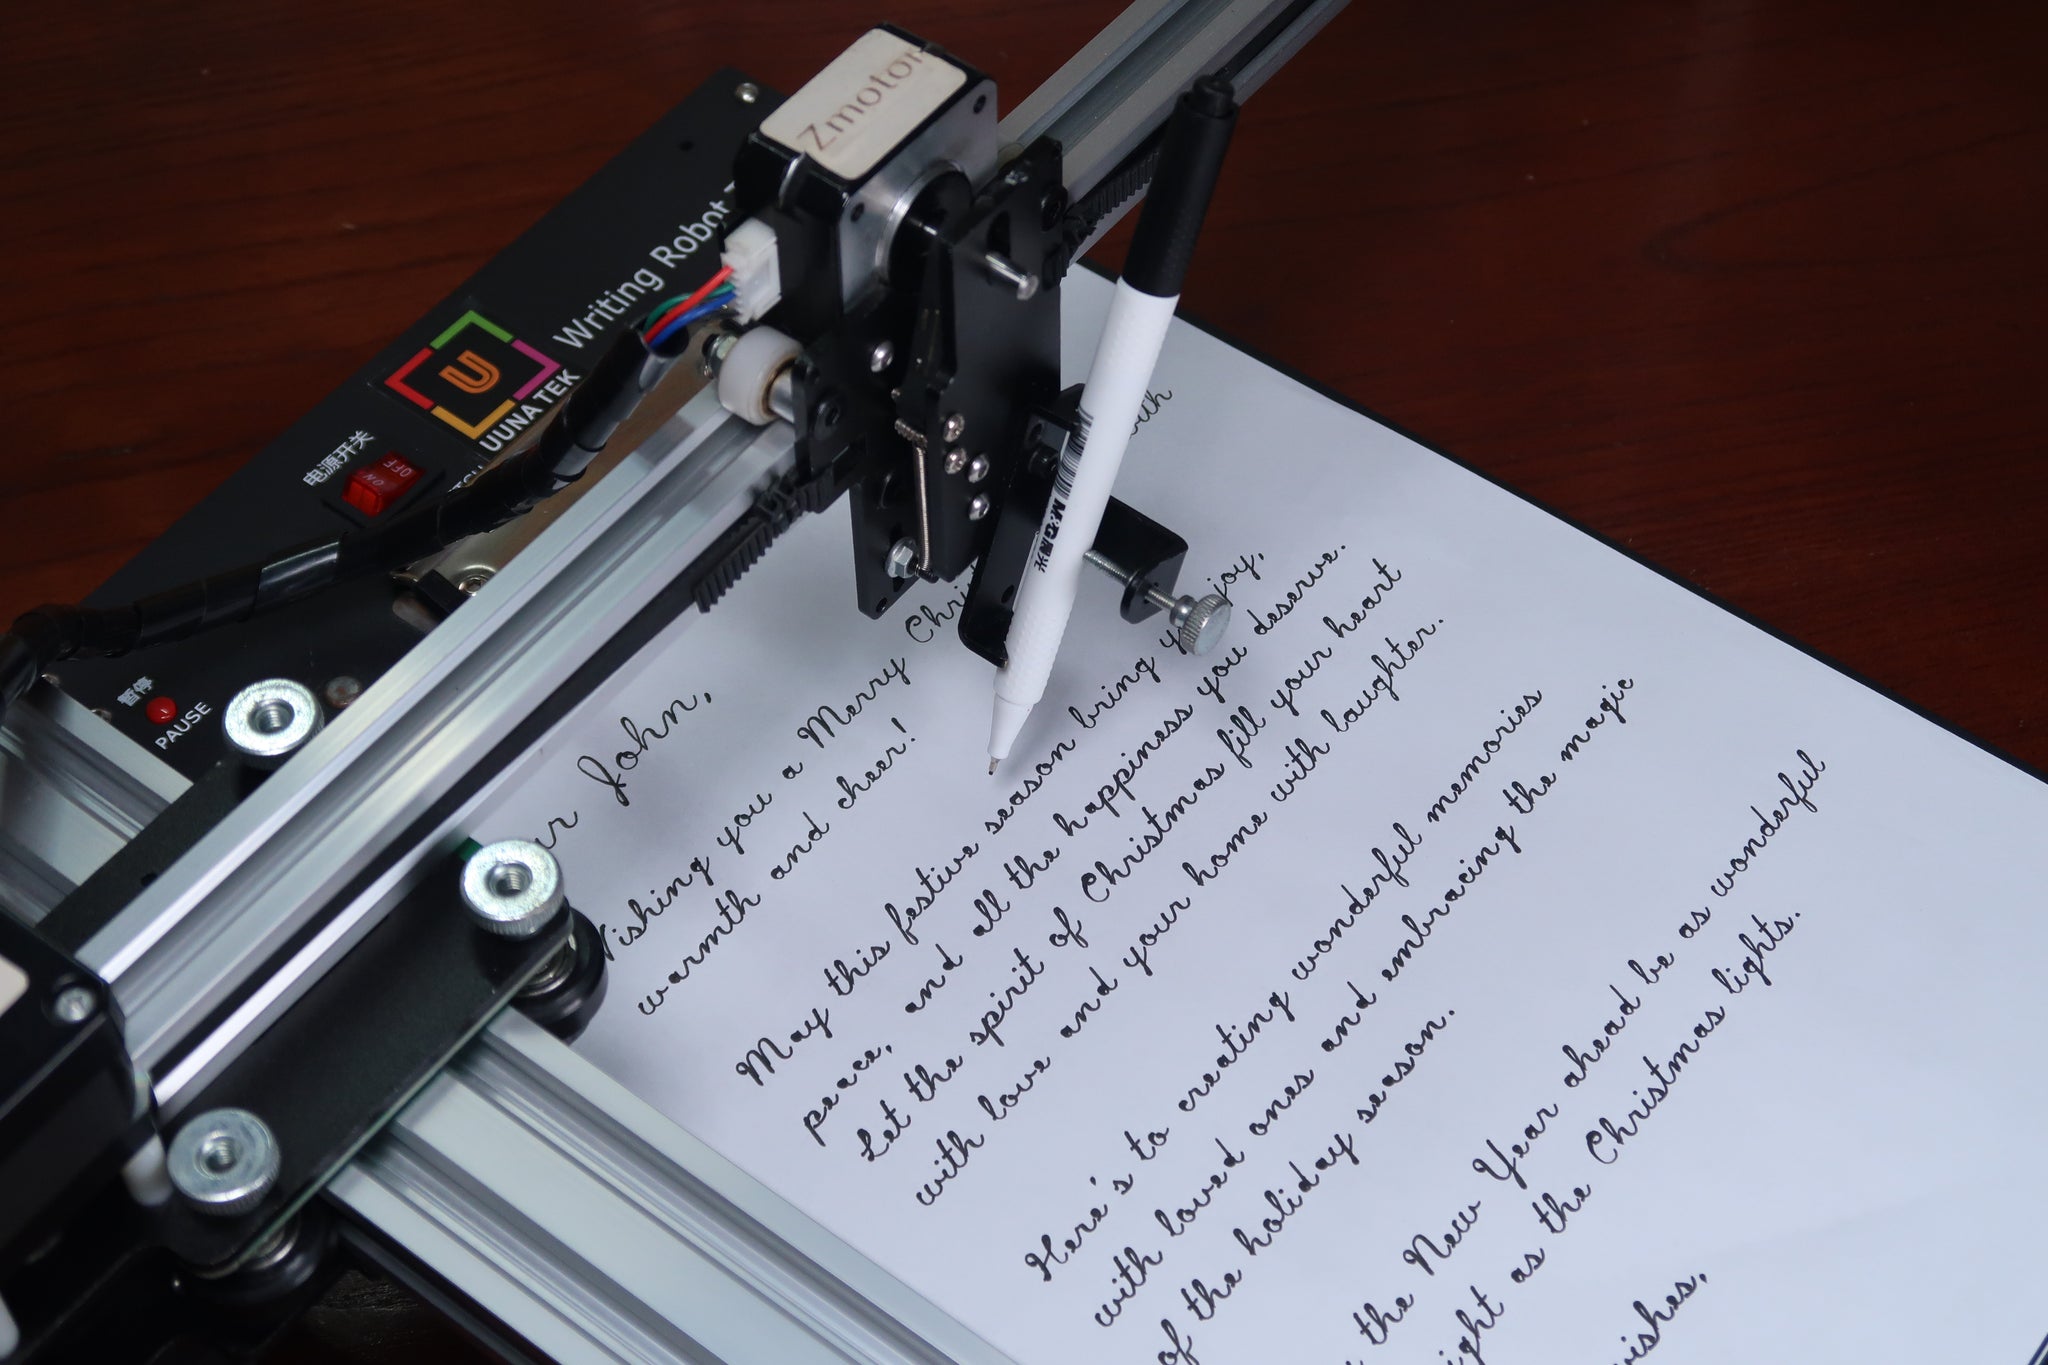 Zmotor
Writing Robot
U
UUNA TEK
电源开关
ON OFF
暂停
PAUSE
M&G 晨光
John,
Wishing you a Merry with
warmth and cheer!
May this festive season bring you joy,
peace, and all the happiness you deserve.
Let the spirit of Christmas fill your heart
with love and your home with laughter.
Here's to creating wonderful memories
with loved ones and embracing the magic
of the holiday season.
the New Year ahead be as wonderful
as the Christmas lights.